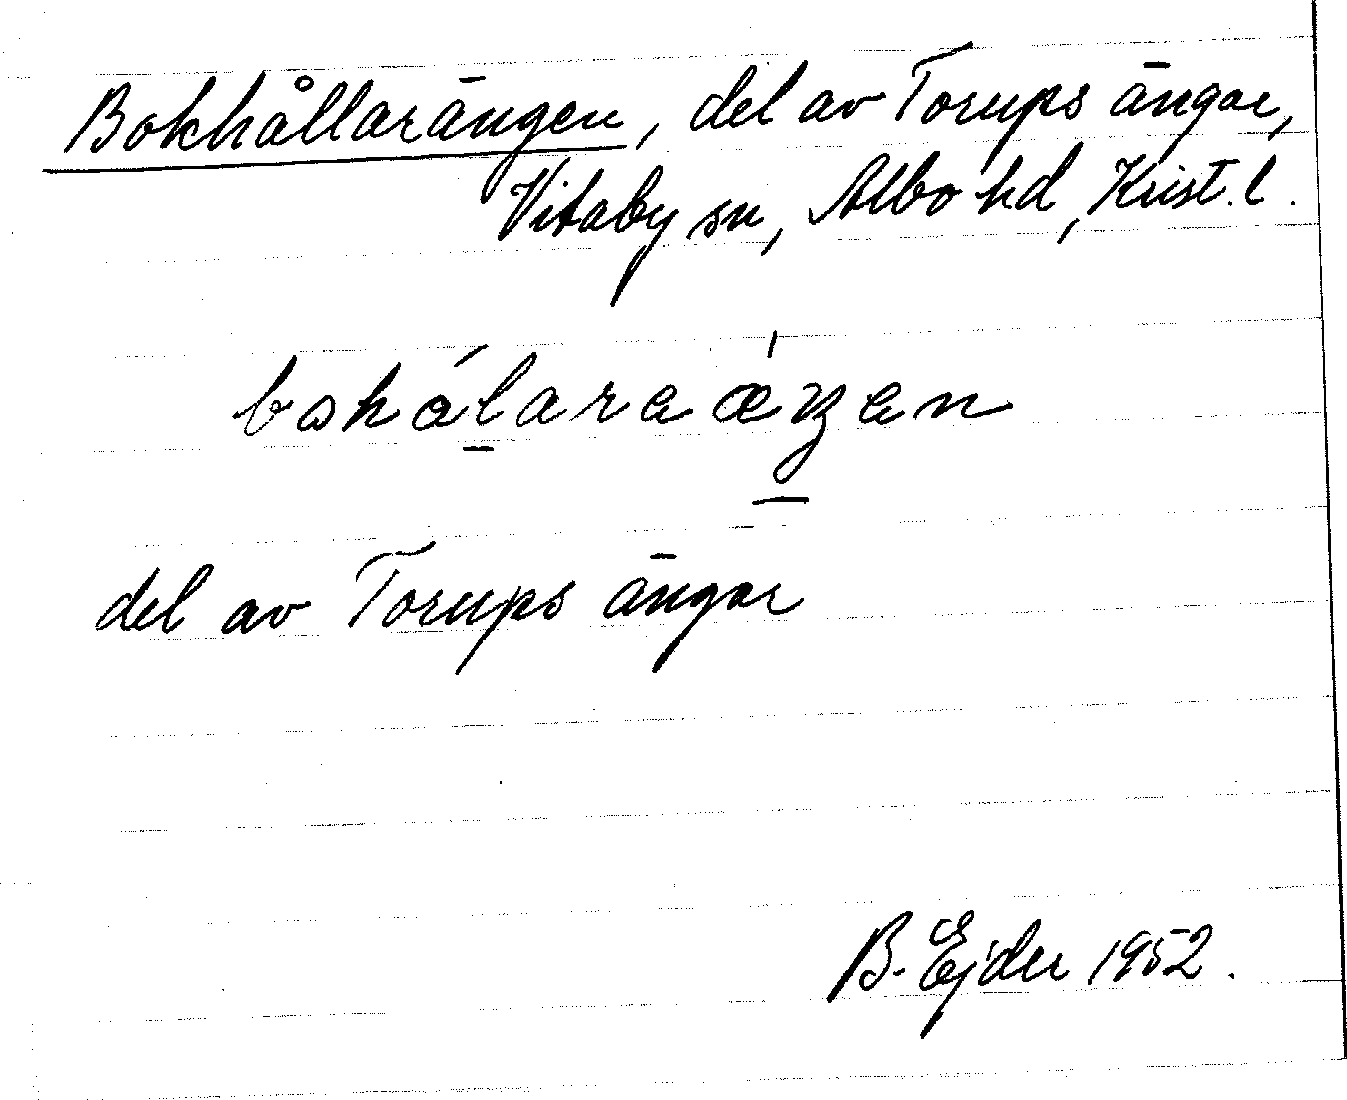 Bokhållarängen, del av Torups ängar,
Vitaby sn, Albo hd, Krist. l.
del av Torups ängar
B. Ejder 1952.